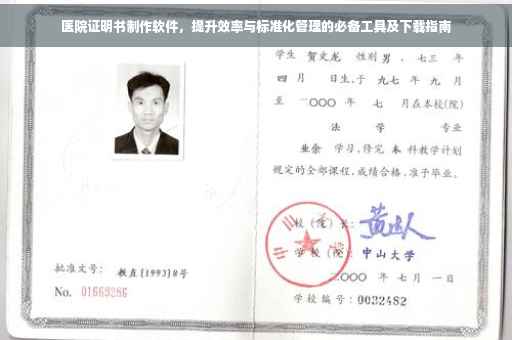 医院证明书制作软件，提升效率与标准化管理的必备工具及下载指南
学生 贺文龙 性别 男 、七三 年
四 月 日生,于 九七 年 九 月
至 二〇〇〇 年 七 月在本校(院)
法 学 专业
业余 学习,修完 本 科教学计划
规定的全部课程,成绩合格,准予毕业。
校(院)长:
学校(院): 中山大学
二〇〇〇 年 七 月 一 日
学校编号: 0032482
批准文号: 教直[1993]8号
No. 01669286